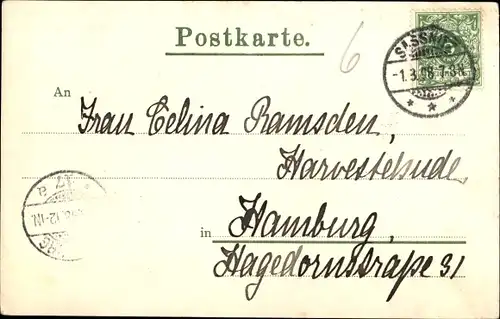 Postkarte.
6
SASSNITZ
-1.3.98.7-8N.
An
Frau Celina Ramsden,
Harvestehude
in Hamburg,
Hagedornstraße 31